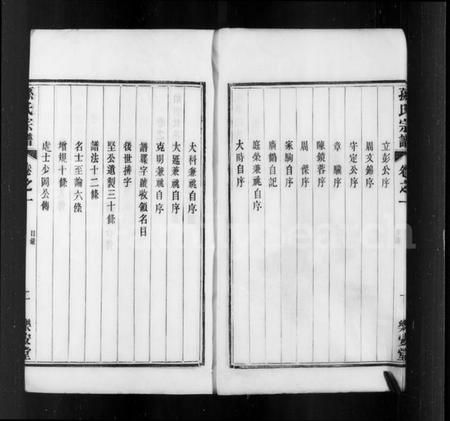 孫氏宗譜
卷之一
樂安堂
立彭公序
周文錦序
守定公序
章驤序
陳鏡蓉序
周傑序
家駒自序
廣鶴自記
庭榮兼祧自序
大時自序
大科兼祧自序
大延兼祧自序
克明兼祧自序
譜號字號收領名目
後世排字
堅公遺製三十條
譜法十二條
名士至論六條
增規十條
處士少岡公傳
孫氏宗譜
卷之一
目錄
二
樂安堂